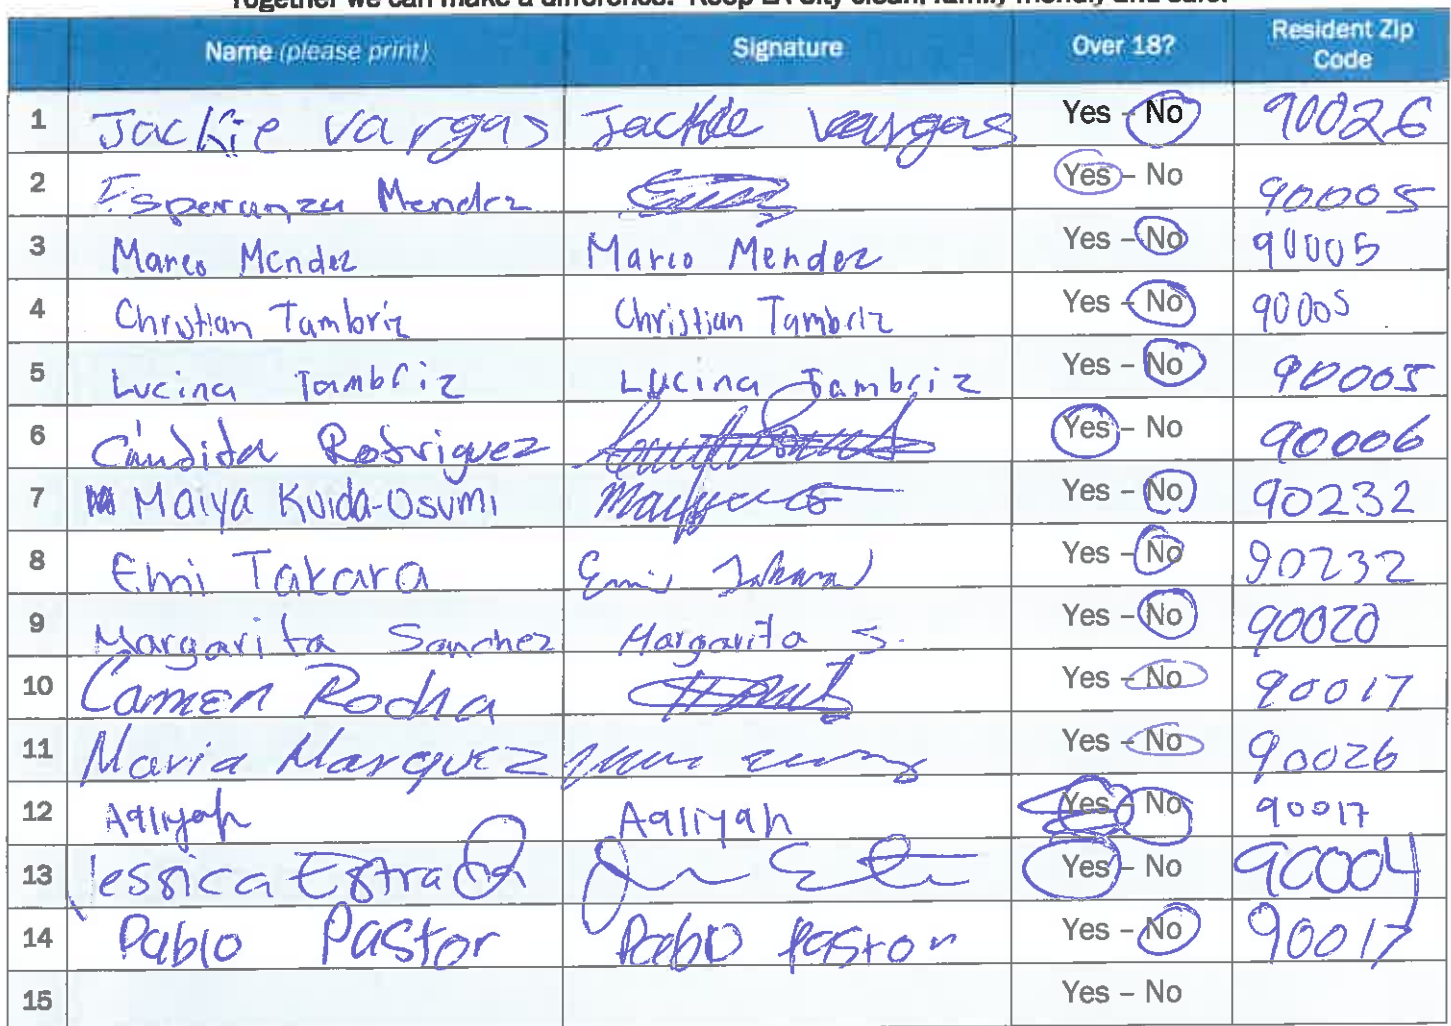 Together we can make a difference. Keep LA City clean, family friendly and safe.
Name (please print) Signature Over 18? Resident Zip Code
1 Jackie Vargas Jackie Vargas Yes – No 90026
2 Esperanza Mendez Yes – No 90005
3 Marco Mendez Marco Mendez Yes – No 90005
4 Christian Tambriz Christian Tambriz Yes – No 90005
5 Lucina Tambriz Lucina Tambriz Yes – No 90005
6 Cándida Rodriguez Yes – No 90006
7 Maiya Kuida-Osumi Yes – No 90232
8 Emi Takara Emi Takara Yes – No 90232
9 Margarita Sanchez Margarita S. Yes – No 90020
10 Carmen Rocha Yes – No 90017
11 Maria Marquez Yes – No 90026
12 Aaliyah Aaliyah Yes – No 90017
13 Jessica Estrada Yes – No 90004
14 Pablo Pastor Pablo Pastor Yes – No 90017
15 Yes – No